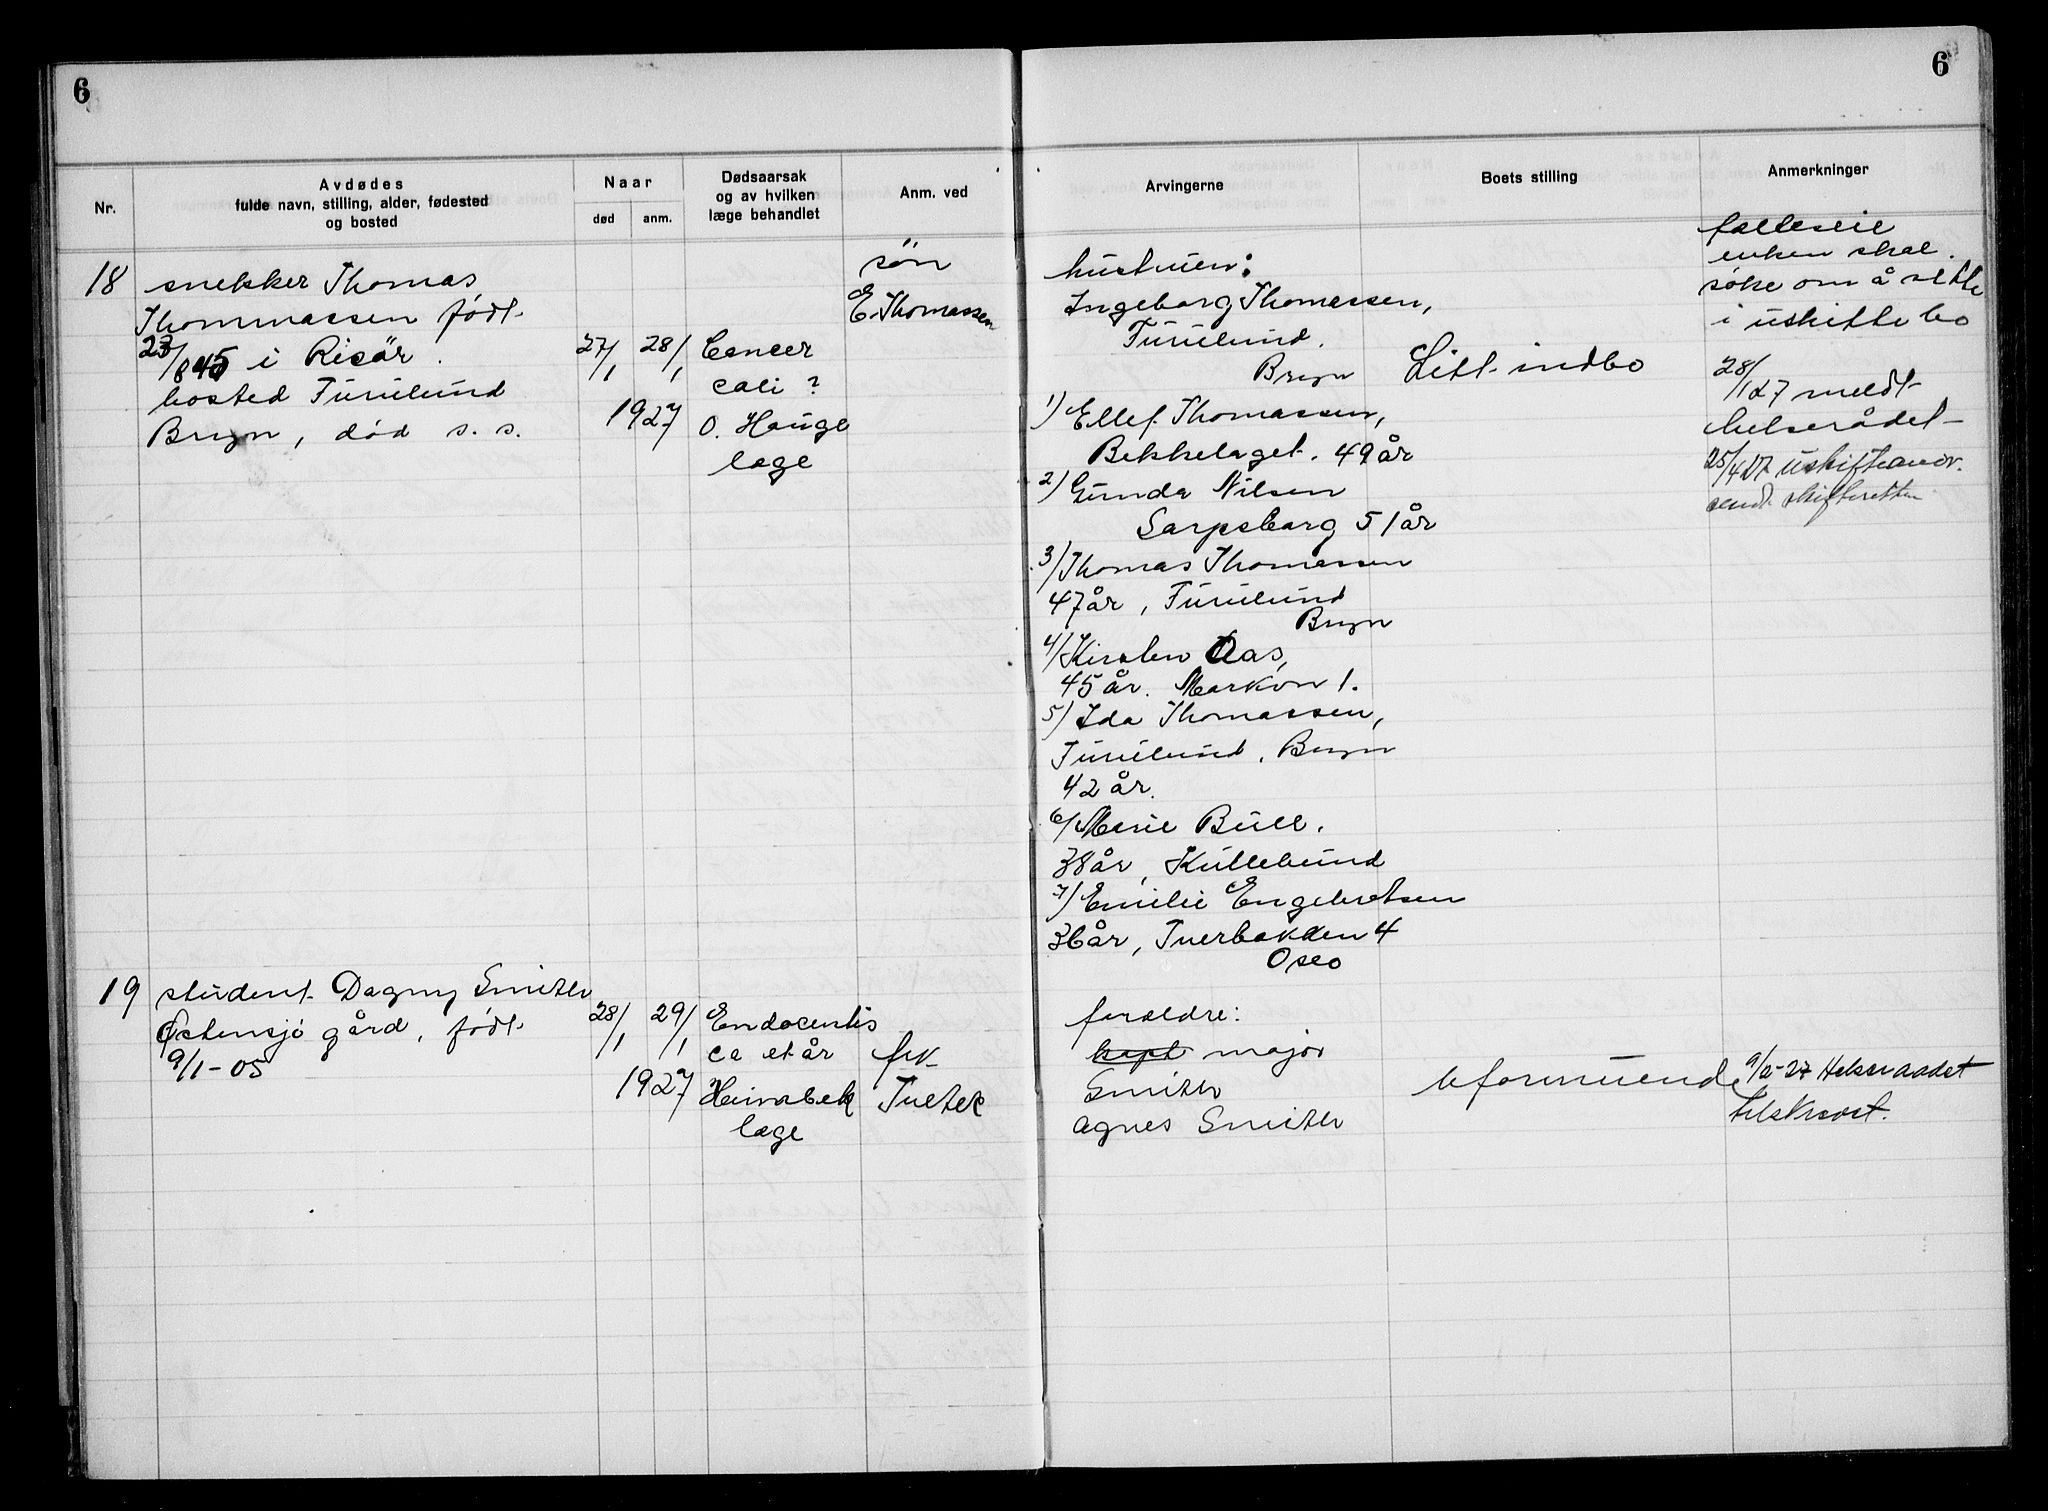 6
6
Nr.
Avdødes
fulde navn, stilling, alder, fødested
og bosted
Naar
død
anm.
Dødsaarsak
og av hvilken
læge behandlet
Anm. ved
Arvingerne
Boets stilling
Anmerkninger
18
snekker Thomas
Thommassen født
23/8 45 i Risör.
bosted Furulund
Bryn, død s. s.
27/1
28/1
1927
Cancer
coli?
O. Hauge
læge
sön
E. Thomassen
hustruen:
Ingeborg Thomassen,
Furulund.
Bryn
1) Ellef Thomassen,
Bekkelaget. 49 år
2) Gunda Nilsen
Sarpsborg 51 år
3) Thomas Thomassen
47 år, Furulund
Bryn
4) Kirsten Aas,
45 år. Markvn 1.
5) Ida Thomassen,
Furulund. Bryn
42 år.
6) Marie Bull.
38 år, Kullebund
7) Emilie Engebretsen
36 år, Tverbakken 4
Oslo
Litt indbo
felleseie
enken skal
søke om å sitte
i uskifte bo
28/1 27 meldt
helserådet
25/4 27 uskifteanor.
sendt skifteretten
19
student Dagny Smith
Østensjö gård, født
9/1-05
28/1
29/1
1927
Endocentis
ca et år
Heimbek
læge
frk
Tveter
foreldre:
kapt major
Smith
Agnes Smith
uformuende
9/2-27 Helseraadet
tilskrevet.